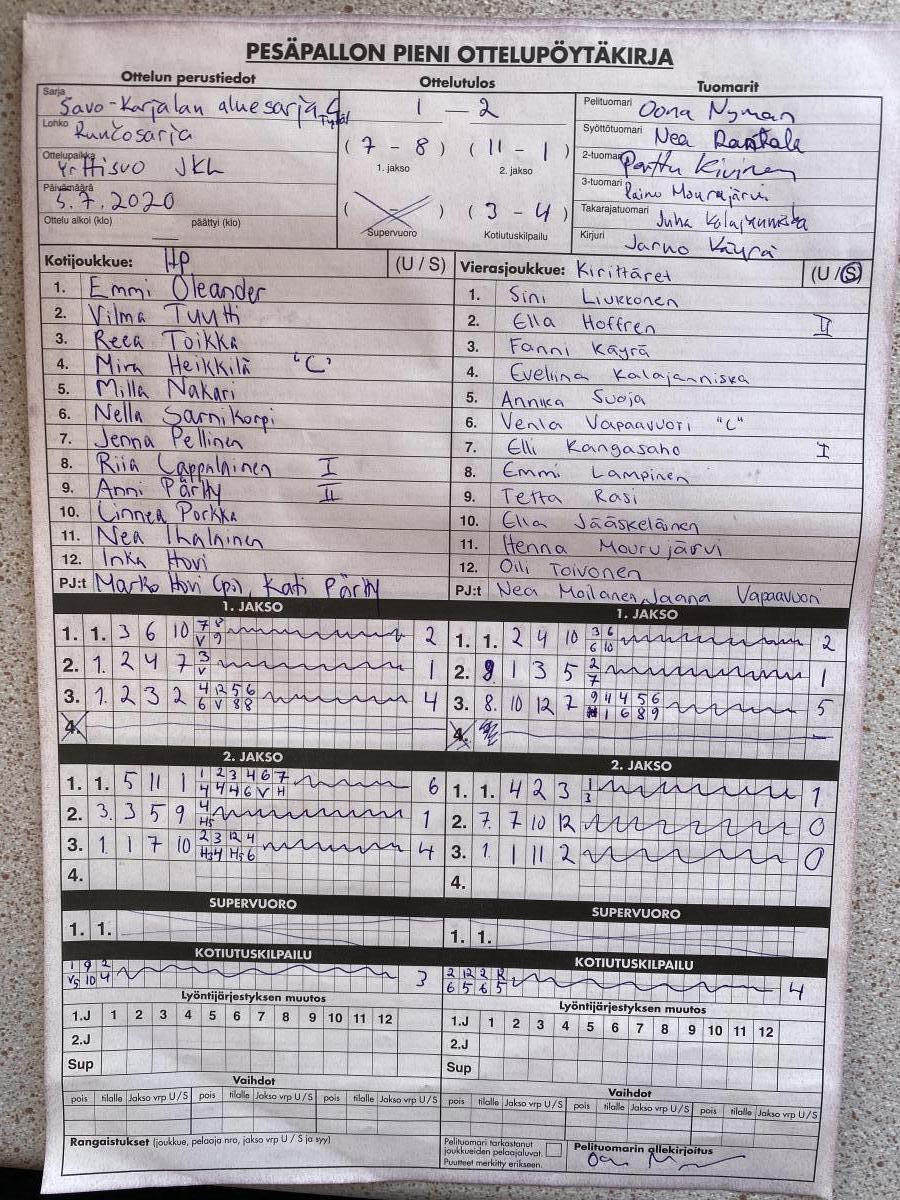 PESÄPALLON PIENI OTTELUPÖYTÄKIRJA
Ottelun perustiedot
Sarja
Savo-Karjalan aluesarja C
Tytöt
Lohko
Runkosarja
Ottelupaikka
Yrttisuo JKL
Päivämäärä
5.7.2020
Ottelu alkoi (klo) päättyi (klo)
Ottelutulos
1 — 2
( 7 - 8 ) ( 11 - 1 )
1. jakso 2. jakso
( - ) ( 3 - 4 )
Supervuoro Kotiutuskilpailu
Tuomarit
Pelituomari Oona Nyman
Syöttötuomari Nea Rantala
2-tuomari Perttu Kivinen
3-tuomari Raino Mourujärvi
Takarajatuomari Juha Kalajanniska
Kirjuri Jarno Käyrä
Kotijoukkue: HP (U / S)
1. Emmi Oleander
2. Vilma Tuutti
3. Reea Toikka
4. Mira Heikkilä "C"
5. Milla Nakari
6. Nella Sarnikorpi
7. Jenna Pellinen
8. Riia Lappalainen I
9. Anni Pärtty II
10. Linnea Porkka
11. Nea Ihalainen
12. Inka Hovi
PJ:t Marko Hovi (pj), Kati Pärtty
Vierasjoukkue: Kirittäret (U / S)
1. Sini Liukkonen
2. Ella Hoffren II
3. Fanni Käyrä
4. Eveliina Kalajanniska
5. Annika Suoja
6. Venla Vapaavuori "C"
7. Elli Kangasaho I
8. Emmi Lampinen
9. Tetta Rasi
10. Ella Jääskeläinen
11. Henna Mourujärvi
12. Oili Toivonen
PJ:t Nea Moilanen, Jaana Vapaavuori
1. JAKSO
1. 1. 3 6 10 7 8 2
V 9
2. 1. 2 4 7 3 1
V
3. 1. 2 3 2 4 12 5 6 4
6 V 8 8
4.
1. JAKSO
1. 1. 2 4 10 3 6 2
6 10
2. 9 1 3 5 2 1
7
3. 8. 10 12 7 9 4 4 5 6 5
1 6 8 9
4. —
2. JAKSO
1. 1. 5 11 1 1 2 3 4 6 7 6
4 4 4 6 V H
2. 3. 3 5 9 4 1
H5
3. 1. 1 7 10 2 3 12 4 4
H3 4 H5 6
4.
2. JAKSO
1. 1. 4 2 3 1 1
3
2. 7. 7 10 12 0
3. 1. 1 11 2 0
4.
SUPERVUORO
1. 1.
SUPERVUORO
1. 1.
KOTIUTUSKILPAILU
1 9 2 3
V5 10 4
KOTIUTUSKILPAILU
2 12 2 12 4
6 5 6 5
Lyöntijärjestyksen muutos
1.J 1 2 3 4 5 6 7 8 9 10 11 12
2.J
Sup
Lyöntijärjestyksen muutos
1.J 1 2 3 4 5 6 7 8 9 10 11 12
2.J
Sup
Vaihdot
pois tilalle Jakso vrp U / S pois tilalle Jakso vrp U / S pois tilalle Jakso vrp U / S
Vaihdot
pois tilalle Jakso vrp U / S pois tilalle Jakso vrp U / S pois tilalle Jakso vrp U / S
Rangaistukset (joukkue, pelaaja nro, jakso vrp U / S ja syy)
Pelituomari tarkastanut
joukkueiden pelaajaluvat.
Puutteet merkitty erikseen.
Pelituomarin allekirjoitus